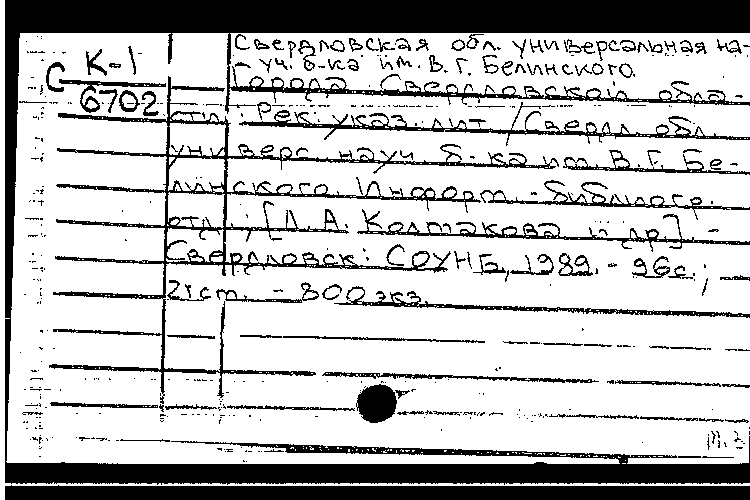 Свердловская обл. универсальная на-
уч. б-ка им. В. Г. Белинского.
С К-1
6702
Города Свердловской обла-
сти: Рек. указ. лит. / Свердл. обл.
универс. науч. б-ка им. В. Г. Бе-
линского. Информ.-библиогр.
отд.; [Л. А. Колмакова и др.] -
Свердловск: СОУНБ, 1989. - 96с.;
21 см. - 800 экз.